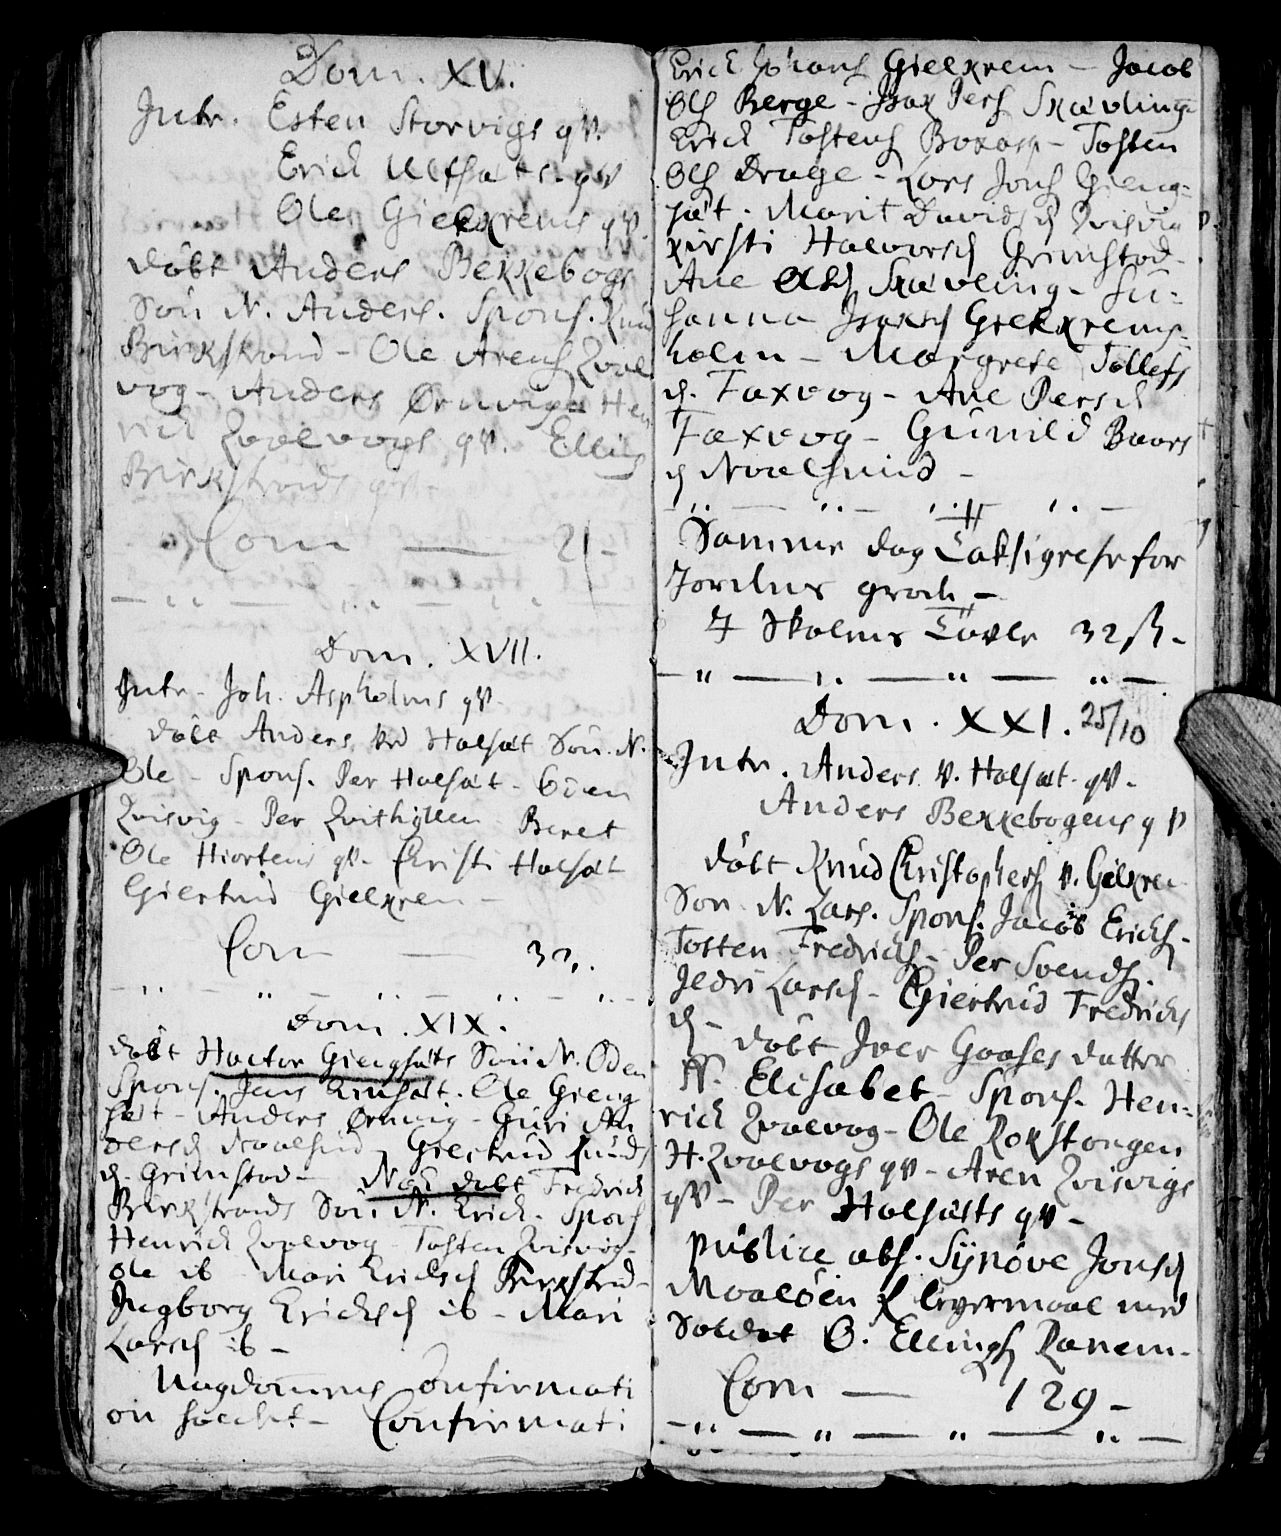 Dom. XV.
Intr. Esten Storvigs qv.
Erick Ulfsæts qv
Ole Gielkrems qv.
døbt Anders Bekkebogs
Søn N. Anders. Spons. Knud
Birkstrand - Ole Arens Qval
vog - Anders Ørnvig Hen
rich Qvalvogs qv. Elling
Birkstrands qv -
Com — 21 -
Dom. XVII.
Intr. Joh. Aspholms qv.
døbt Anders Halsæt Søn N.
Ole - Spons. Per Halsæt - Even
Qvisvig - Per Qvithyllen Beret
Ole Hiortens qv. Christi Halsæt
Giertrud Gielkrem -
Com — 30.
Dom. XIX.
døbt Hactor Giengsæts Søn N. Oden
Spons. Jens Linsæt. Ole Gieng
sæt - Anders Ørnvig - Guri An
dersd Nvalsund Giertrud Knuds
d. Grimstad - Nød døbt Fredrich
Birkstrands Søn N. Erick. Spons
Henrich Qvalvog Tosten Qvisvig -
Ole ib Mari Ericksd Birkstrd -
Ingborg Ericksd ib - Mari
Larsd ib -
Ungdommens Confirmati
on Confirmati
Erick Johans Gielkrem - Jacob
Ols Berge - Isax Pers Skævling
Erick Tostens Boxasp - Tosten
Ols Drage - Lars Jons Gieng-
sæt. Marit Davidsd Qvisvig
Kirsti Halvorsd Grimstad -
Ane Olsd Skævling - Su-
sanna Isaxsd Gielkrems-
holm - Margrete Tollefs
d. Faxvog - Ane Persd
Faxvog - Gunild Baars
d Nvalsund -
Samme dag Taksigelse for
Jordens grøde -
I Skolens Tavle 32 ß -
Dom. XXI. 25/10
Intr. Anders v. Halsæt. qv -
Anders Bekkebogens qv
døbt Knud Christophers v. Gielkrem
Søn N. Lars. Spons. Jacob Ericks -
Tosten Fredricks - Per Svends.
Jedri Larsd - Giertrud Fredricks
d - døbt Iver Gaases datter
N. Elisabet - Spons. Hen-
rick Qvalvog - Ole Rokstangen
H. Qvalvogs qv - Aren Qvisvigs
qv - Per Halsæts qv -
publice abs. Synøve Jonsd
Maaløen f leyermaal med
Soldat O. Ellings Ranem -
Com — 129 -